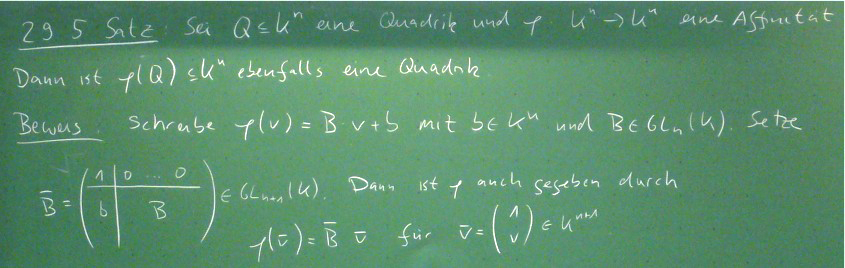 29.5 Satz: Sei Q ⊆ Kⁿ eine Quadrik und φ: Kⁿ → Kⁿ eine Affinität
Dann ist φ(Q) ⊆ Kⁿ ebenfalls eine Quadrik.
Beweis: Schreibe φ(v) = B·v + b mit b ∈ Kⁿ und B ∈ GLₙ(K). Setze
B̄ = ( 1 | 0 … 0 ; b | B ) ∈ GLₙ₊₁(K). Dann ist φ auch gegeben durch
φ(v̄) = B̄ v̄ für v̄ = ( 1 ; v ) ∈ Kⁿ⁺¹